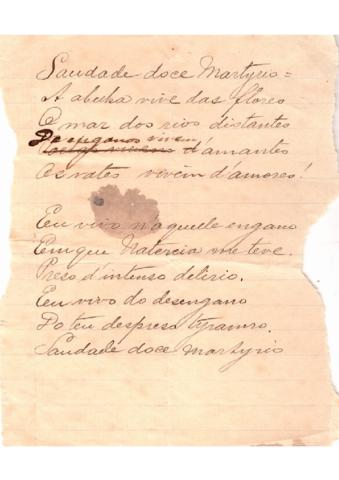 Saudade doce Martyrio =
A abelha vive das flores
O mar dos rios distantes
Desenganos vivem d'amantes
Os vates vivem d'amores!
Eu vivo n'aquelle engano
Em que Natercia me teve.
Preso d'intenso delirio.
Eu vivo do desengano
Do teu despreso tyranno.
Saudade doce Martyrio